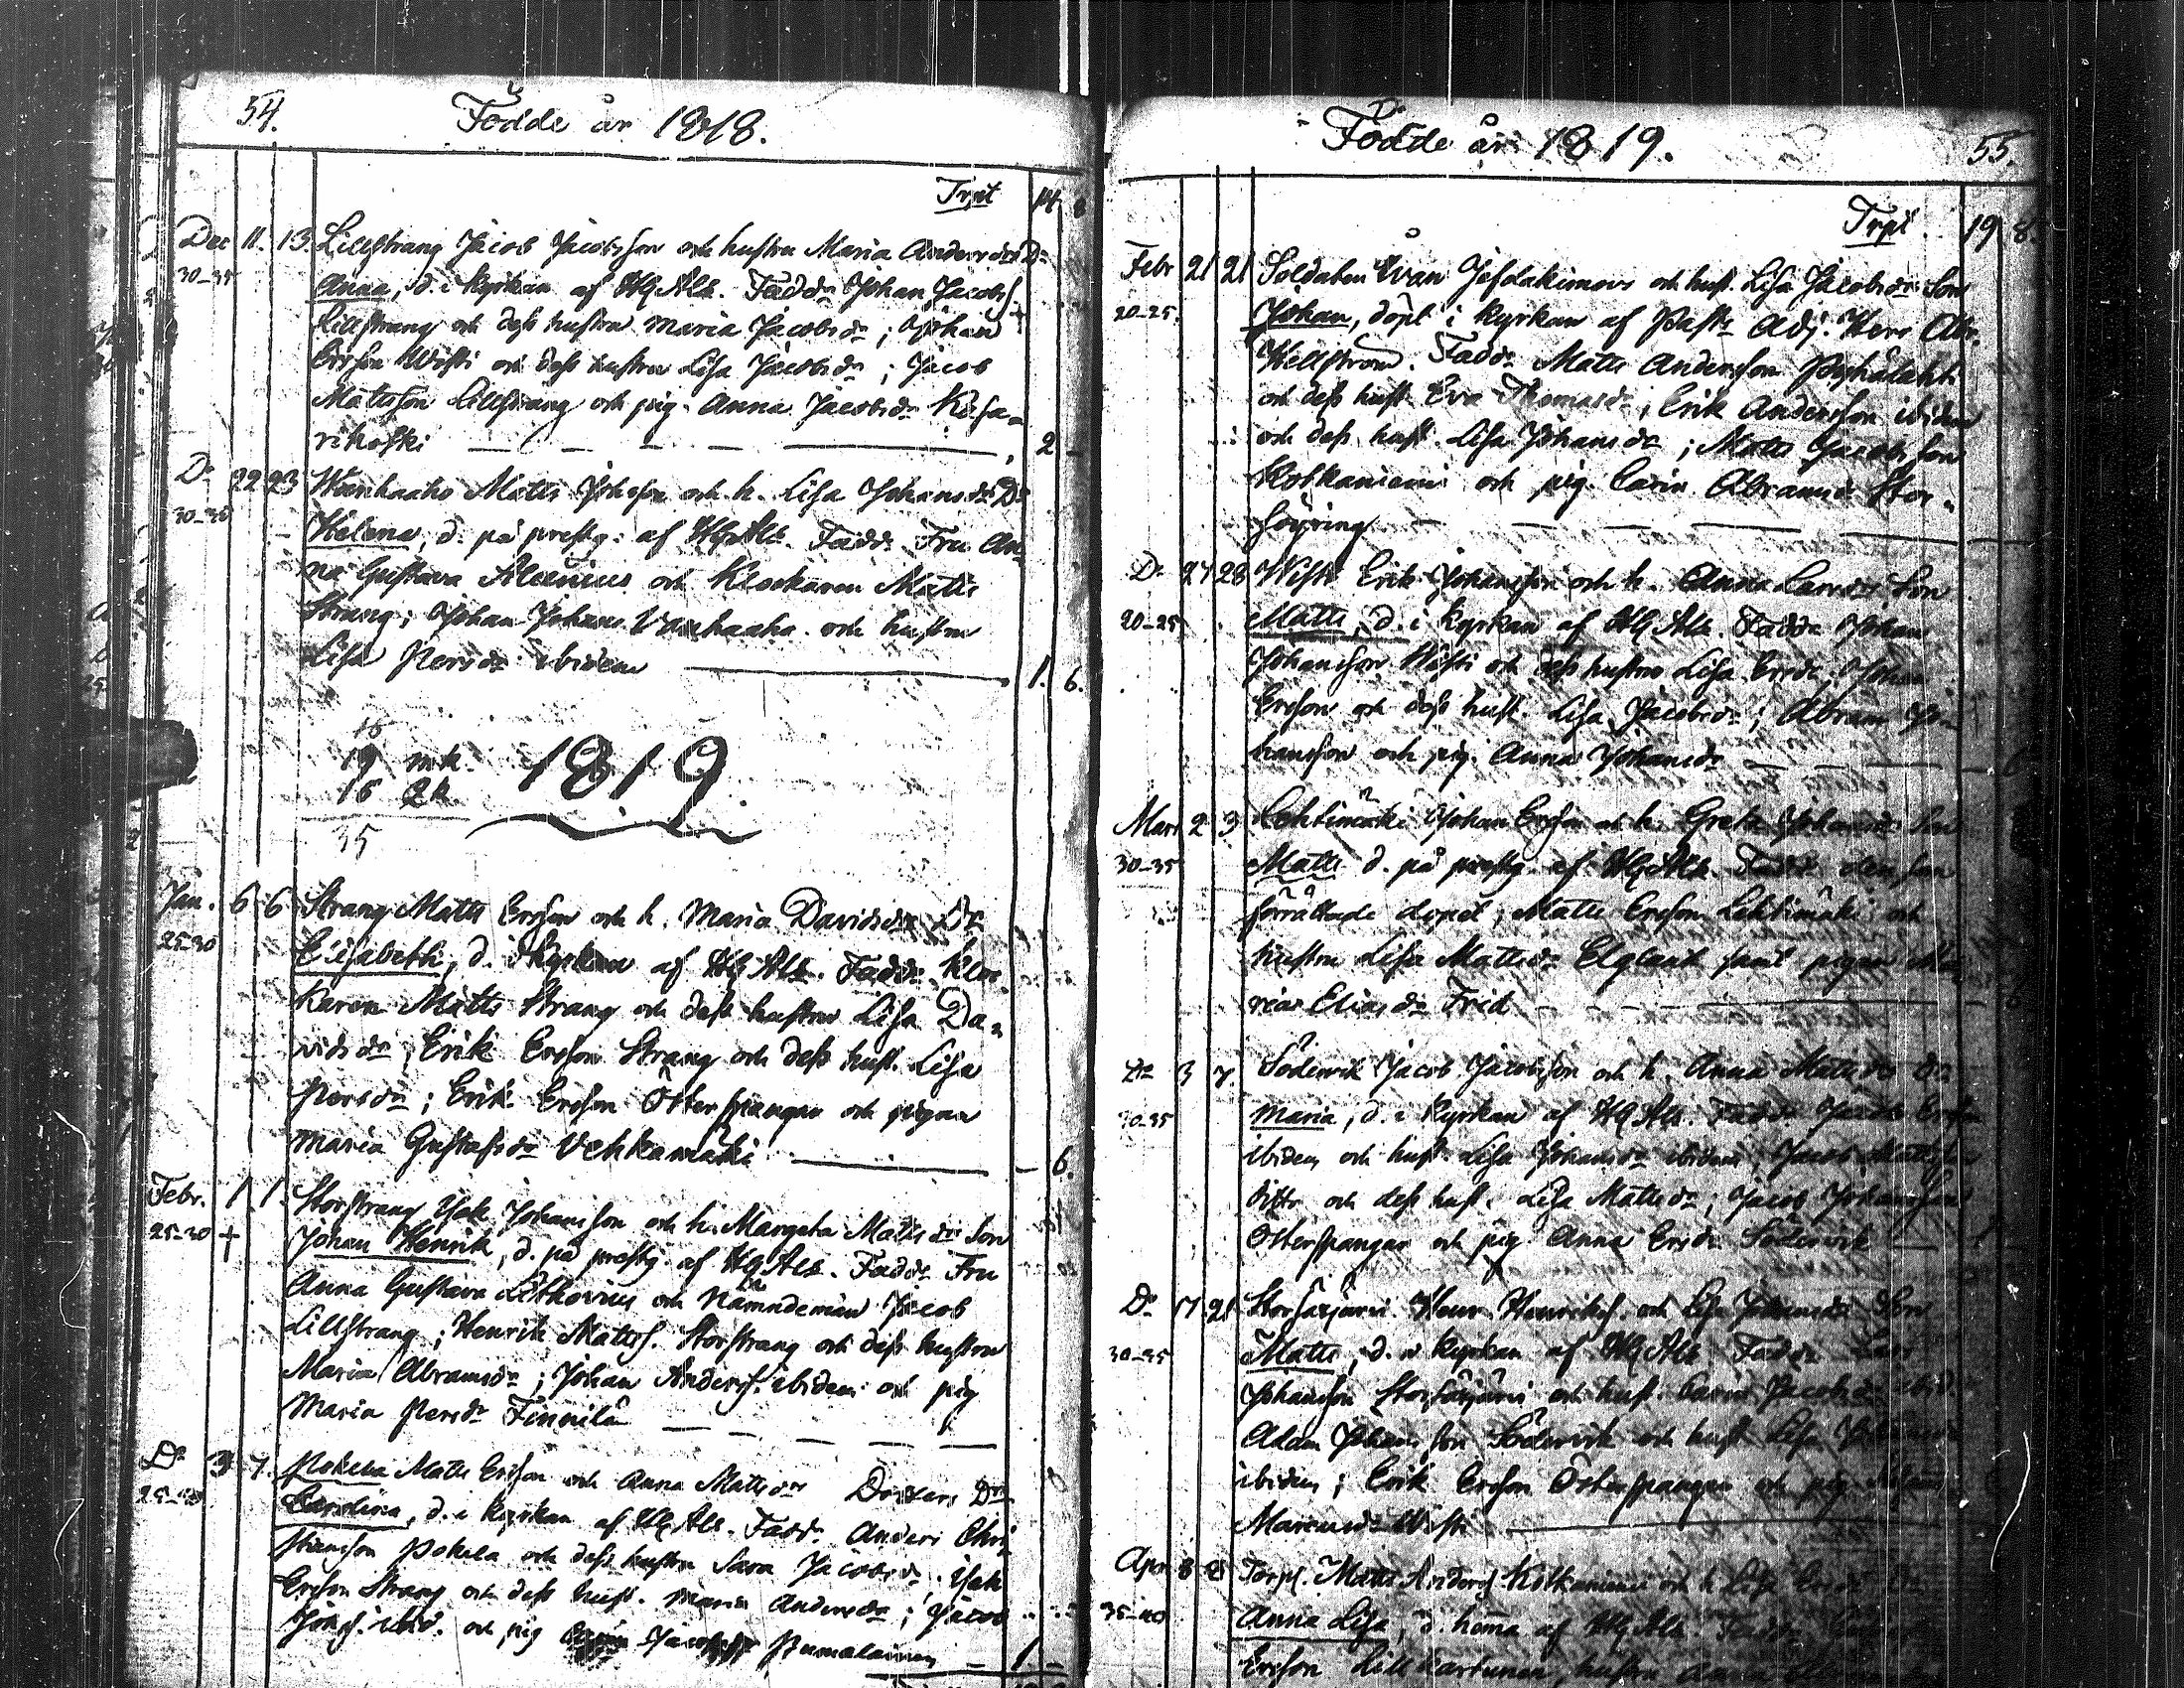 54. Födde år 1818.
Trpt 14. 8
Dec 11. 13. Lillstrang Jacob Jacobsson och hustru Maria Andersdr Dr
30-35 Anna, d. i kyrkan af HqAlb. Fadd. Johan Jacobs.
Lillstrang och dess hustru Maria Jacobsdr; Johan
Ersson Wisti och dess hustru Lisa Jacobsdr; Jacob
Mattsson Lillstrang och pig. Anna Jacobsdr Kesa-
rikoski 2 -
Do 22 23 Matts Johsson och h. Lisa Johansdr Dr
30-35 Helena, d. på prestg. af HqAlb. Fadd. Fru An-
na Gustava och Klockaren Matts
Strang; Johan Johans Vanhaaho och hustru
Lisa Persdr ibidem 1. 6.
16
19 mk. 1819.
16 qk
35
Jan. 6 6 Strang Matts Ersson och h. Maria Davidsdr Dr
25-30 Elisabeth, d. i kyrkan af HqAlb. Fadd. Kloc-
karen Matts Strang och dess hustru Lisa Da-
vidsdr; Erik Ersson Strang och dess hust. Lisa
Persdr; Erik Ersson Otterspangar och pigan
Maria Gustafsdr Vehkamäki - 6.
Febr. 1 1. Storstrang Isak Johansson och h. Margeta Mattsdr Son
25-30 † Johan Henrik, d. på prestg. af HqAlb. Fadd. Fru
Anna Gustava Lithovius och Nämndeman Jacob
Lillstrang; Henrik Mattss. Storstrang och dess hustru
Maria Abramsdr; Johan Anderss. ibidem och pig
Maria Persdr Finnilä
Do 3 7. Pokela Matts Ersson och Anna Mattsdr Dotter Dr
25-30 Carolina, d. i kyrkan af HqAlb. Fadd. Anders Chri-
stiansson Pokela och dess hustru Sara Jacobsdr; Isak
Ersson Strang och dess hust. Maria Andersdr; Jacob
ibid. och pig Pumalainen - 1 -
Födde år 1819. 55.
Trpt. 19 8.
Febr 21 21 Soldaten Iwan Jefdakimow och hust. Lisa Jacobsdr Son
20-25. Johan, döpt i kyrkan af Past. Adj. Herr Abr.
Hellström. Fadd. Matts Andersson Pyhälahti
och dess hust. Eva Thomasdr; Erik Andersson ibidem
och dess hust. Lisa Johansdr; Matts Jacobsson
Kotkaniemi och pig. Carin Abramsdr Stor-
Do 27 28 Wisti Erik Johansson och h. Anna Larsdr Son
20-25 Matts, d. i kyrkan af HqAlb. Fadd. Johan
Johansson Wisti och dess hustru Lisa Ersdr; Johan
Ersson och dess hust. Lisa Jacobsdr; Abram Jo-
hansson och pig. Anna Johansdr
Mars 2 3 Lehtimäki Johan Ersson och h. Greta Johansdr Son
30-35 Matts d. på prestg. af HqAlb. Fadd. den som
förrättade dopet; Matts Ersson Lehtimäki och
hustru Lisa Mattsdr Elglant samt pigan Ma-
ria Eliasdr Frid
Do 3 7. Södervik Jacob Jacobsson och h. Anna Mattsdr Dr
30-35 Maria, d. i kyrkan af HqAlb. Fadd. Jacob Ersson
ibidem och hust. Lisa Johansdr ibidem; Jacob Mattsson
ditto och dess hust. Lisa Mattsdr; Jacob Johansson
Otterspangar och pig. Anna Ersdr Södervik
Do 17 21 Storsärjärvi Henr. Henrikss. och Lisa Johansdr Son
30-35 Matts, d. i kyrkan af HqAlb. Fadd.
Johansson Storsärjärvi och hust. Carin Jacobsdr ibid.
Adam Johansson Södervik och hust. Lisa
ibidem; Erik Ersson Österspangar och pig.
Marcusdr Wisti
Apr. 8 8 Torp. Matts Anderss Kotkaniemi och h. Lisa Ersdr
35-40 Anna Lisa, d. hema af HqAlb. Fadd.
Ersson Lillkartunen, hustru Anna